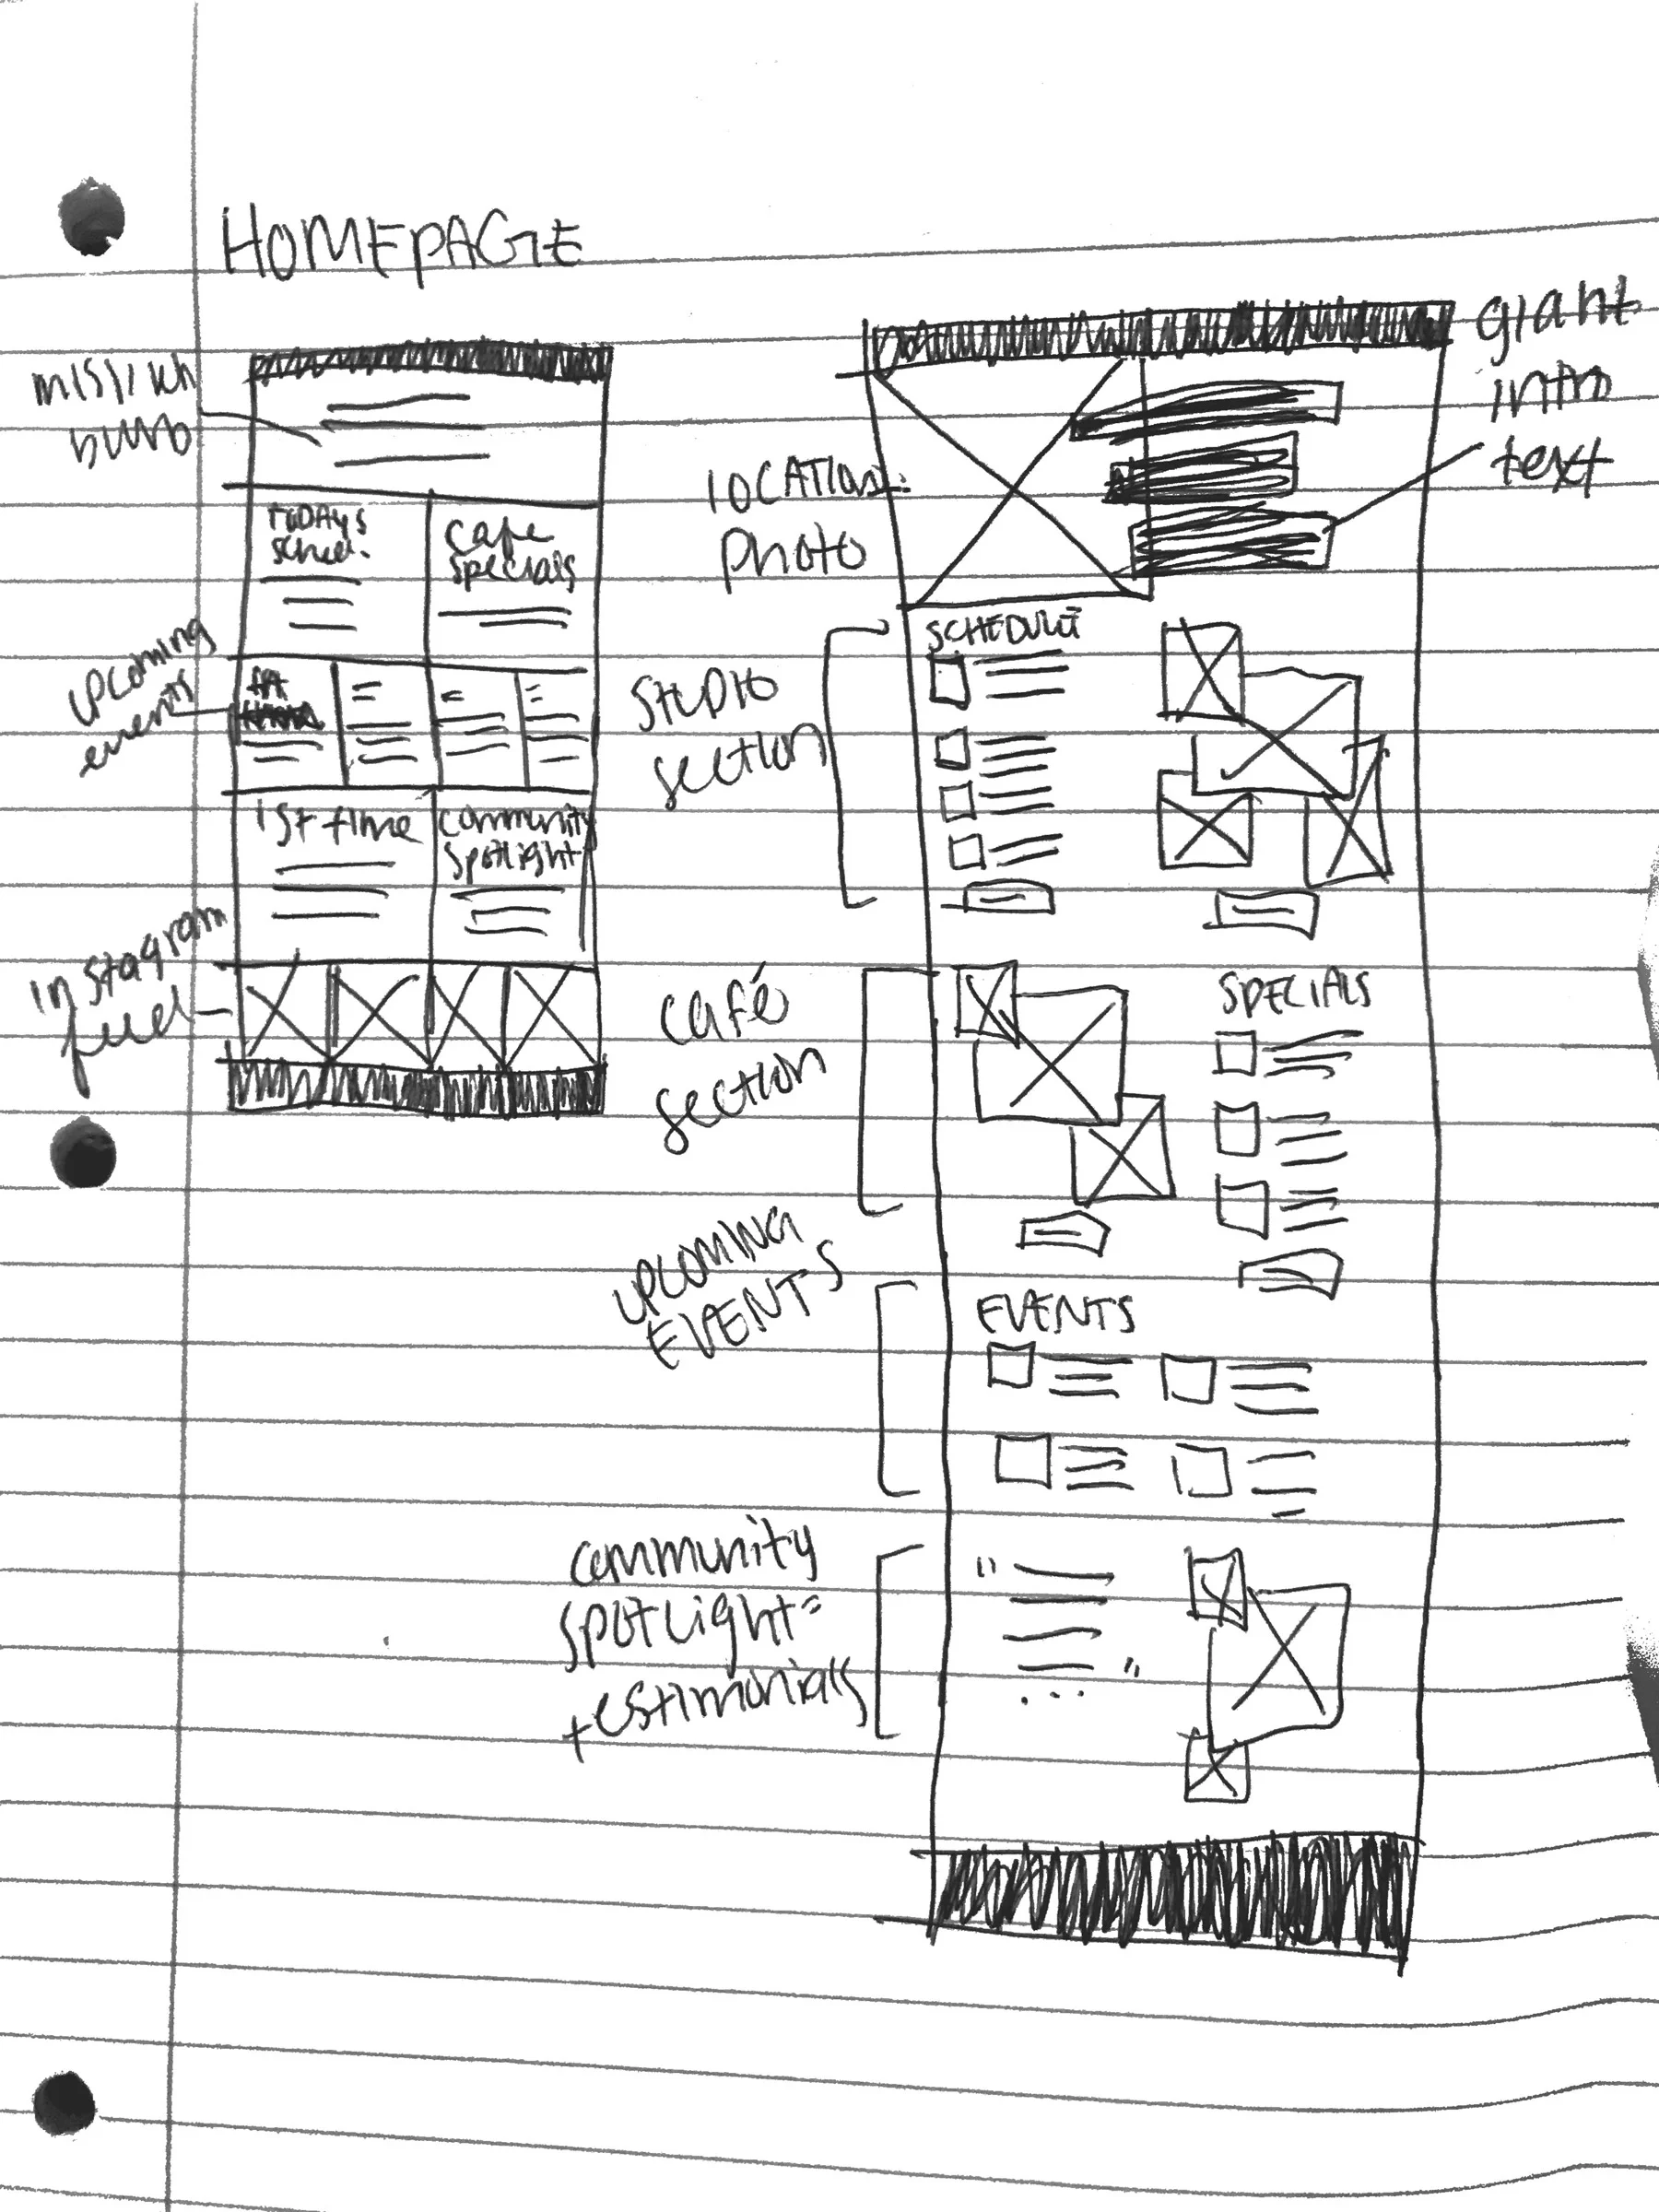 HOMEPAGE
mission
blurb
TODAYS
sched.
cafe
specials
upcoming
events
1st time
community
spotlight
instagram
fuel
giant
intro
text
LOCATION
photo
STUDIO
section
SCHEDULE
café
section
SPECIALS
UPCOMING
EVENTS
EVENTS
community
spotlight=
testimonials
" "
...